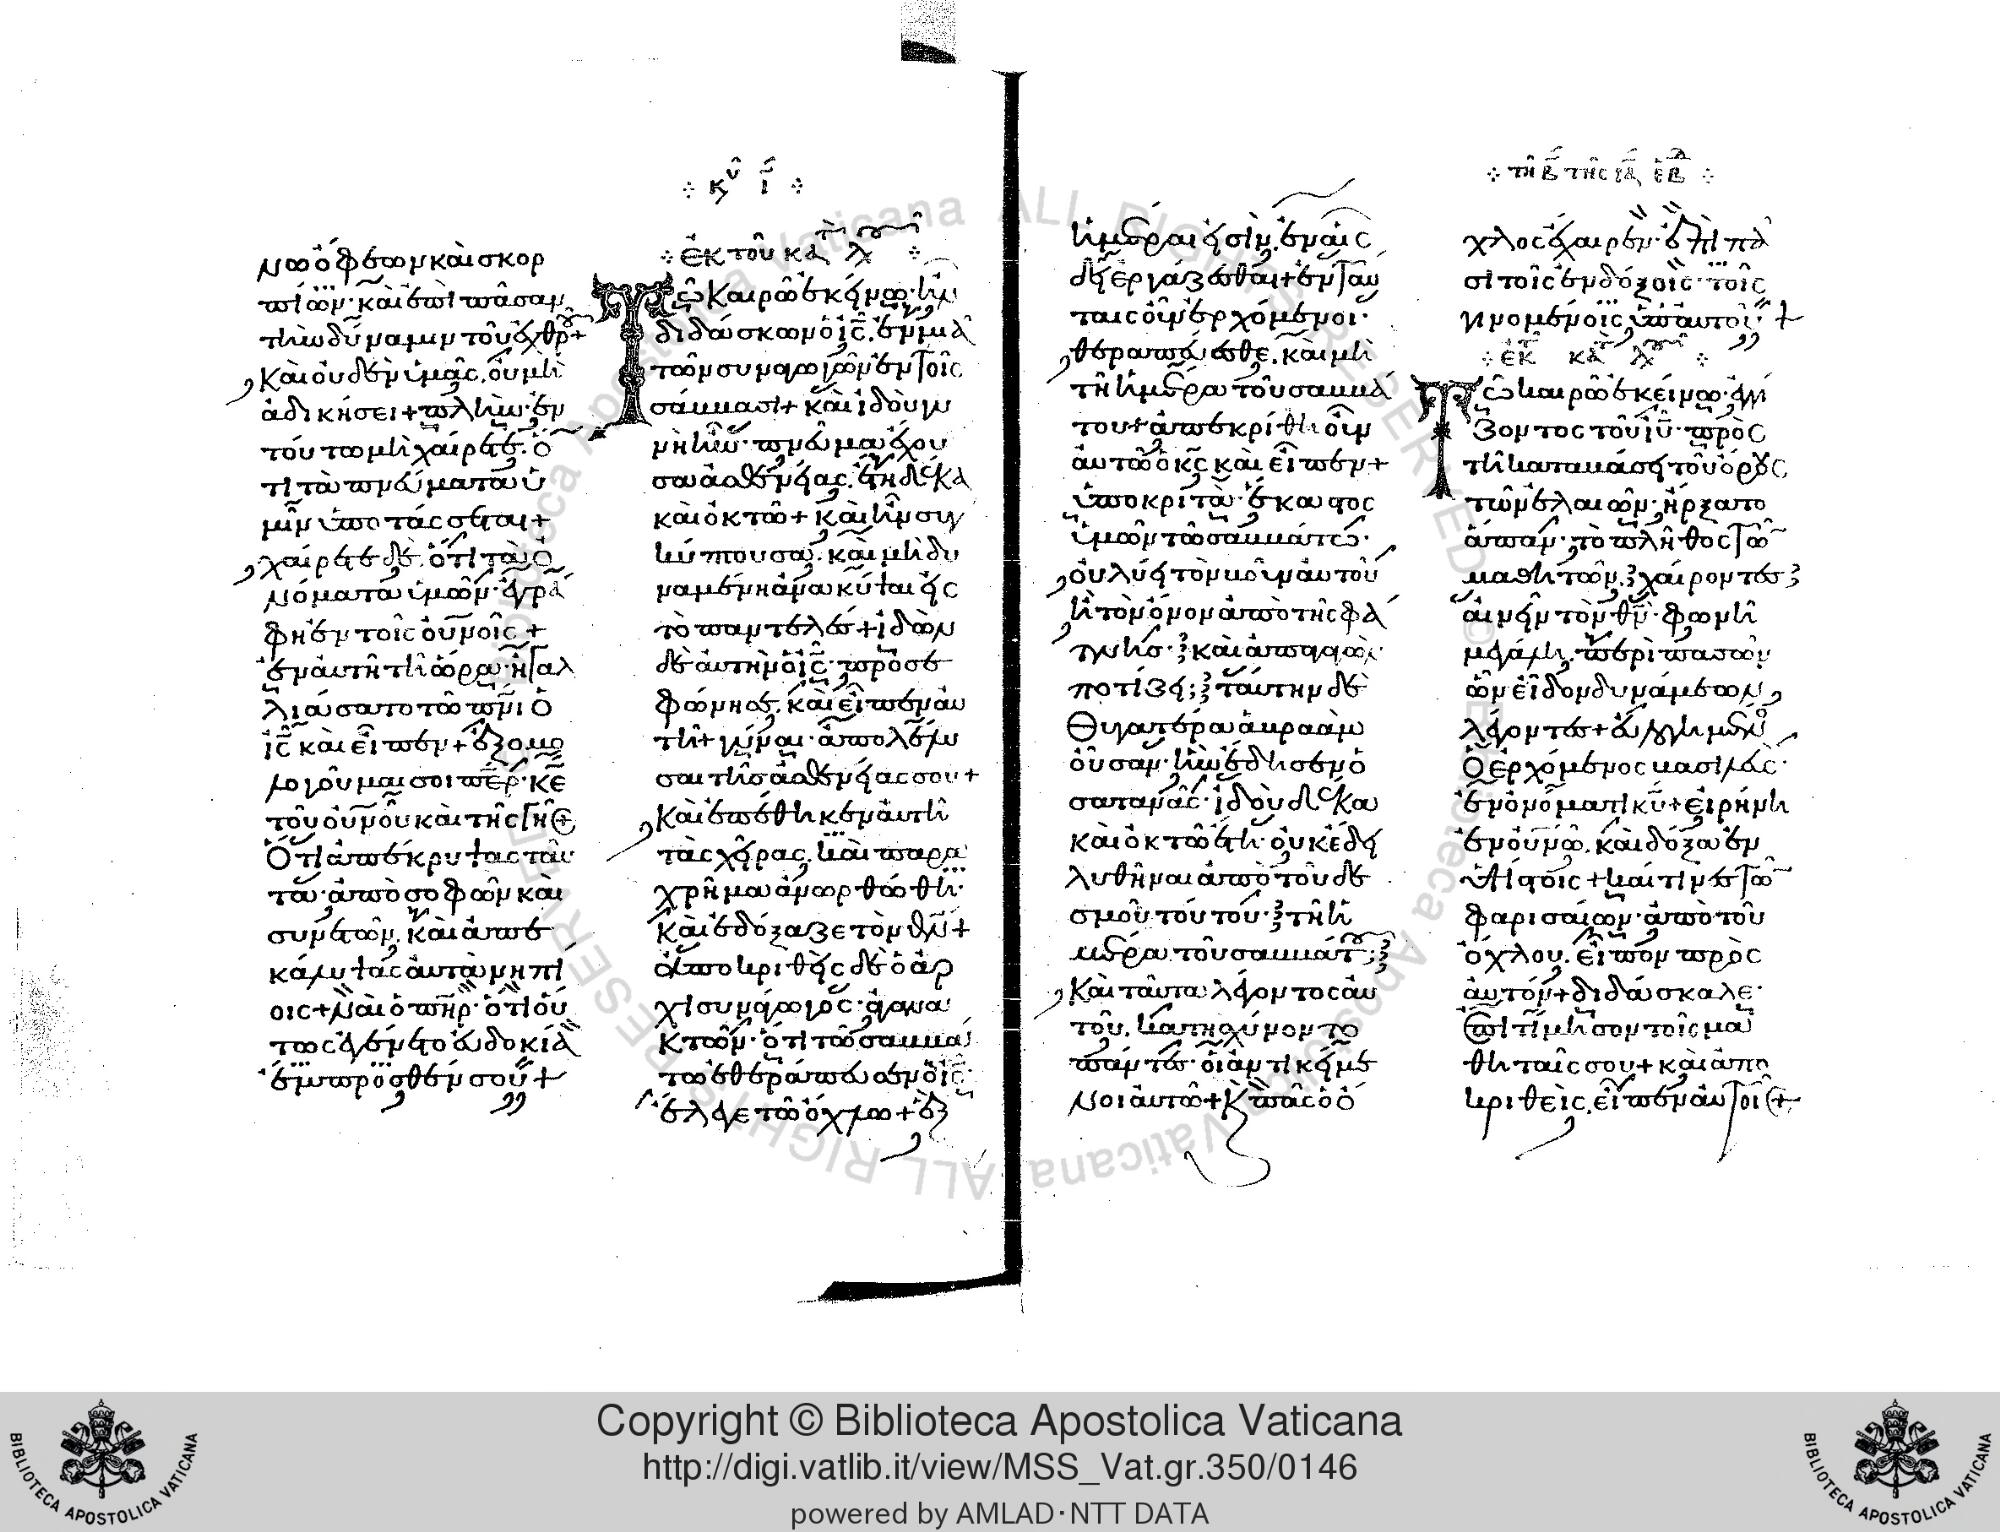 κυ ι
νω ὄφεων καὶ σκορ
πίων· καὶ ἐπὶ πᾶσαν
τὴν δύναμιν τοῦ ἐχθροῦ +
Καὶ οὐδὲν ὑμᾶς, οὐ μὴ
ἀδικήσει + πλὴν ἐν
τούτω μὴ χαίρετε. ὅ
τι τὰ πνεύματα ὑ
μῖν ὑποτάσσεται +
χαίρετε δὲ, ὅτι τὰ ὀ
νόματα ὑμῶν· ἐγρά
φη ἐν τοῖς οὐνοῖς +
ἐν αὐτῆ τῆ ὥρα ἠγαλ
λιάσατο τῶ πνι ὁ
ις καὶ εἶπεν + ἐξομο
λογοῦμαι σοι περ· κε
τοῦ οὐνοῦ καὶ τῆς γῆς +
Ὅτι ἀπέκρυψας ταῦ
τα· ἀπὸ σοφῶν καὶ
συνετῶν, καὶ ἀπε
κάλυψας αὐτὰ νηπί
οις + Ναὶ ὁ πηρ· ὅτι οὕ
τως ἐγένετο εὐδοκία
ἔμπροσθέν σου +
ἐκ τοῦ κατὰ λουκᾶν
Τῶ Καιρῶ ἐκείνω ἦν
διδάσκων ὁ ις, ἐν μιᾶ
τῶν συναγωγῶν ἐν τοῖς
σάββασι + καὶ ἰδοὺ γυ
νὴ ἦν· πνεῦμα ἔχου
σα ἀσθενείας, ἔτη δέκα
καὶ ὀκτώ + καὶ ἦν συγ
κύπτουσα, καὶ μὴ δυ
ναμένη ἀνακύψαι εἰς
τὸ παντελές + ἰδὼν
δὲ αὐτὴν ὁ ις· προσε
φώνησε, καὶ εἶπεν αὐ
τῆ + γύναι· ἀπολέλυ
σαι τῆς ἀσθενείας σου +
Καὶ ἐπέθηκεν αὐτῆ
τὰς χεῖρας, καὶ παρα
χρῆμα ἀνωρθώθη·
Καὶ ἐδόξαζε τὸν θν +
ἀποκριθεὶς δὲ ὁ ἀρ
χισυνάγωγος· ἀγανα
κτῶν· ὅτι τῶ σαββά
τω ἐθεράπευσεν ὁ ις·
ἔλεγε τῶ ὄχλω + ἓξ
τῆ β της ια εβδ
ἡμέραι εἰσὶν, ἐν αἷς
δεῖ ἐργάζεσθαι + ἐν ταύ
ταις οὖν ἐρχόμενοι·
θεραπεύεσθε, καὶ μὴ
τῆ ἡμέρα τοῦ σαββά
του + ἀπεκρίθη οὖν
αὐτῶ ὁ κς καὶ εἶπεν +
ὑποκριτά· ἕκαστος
ὑμῶν τῶ σαββάτω·
οὐ λύει τὸν βοῦν αὐτοῦ
ἢ τὸν ὄνον ἀπὸ τῆς φά
τνης· καὶ ἀπαγαγὼν·
ποτίζει; ταύτην δὲ
θυγατέρα ἀβραὰμ
οὖσαν· ἣν ἔδησεν ὁ
σατανᾶς· ἰδοὺ δέκα
καὶ ὀκτὼ ἔτη· οὐκ ἔδει
λυθῆναι ἀπὸ τοῦ δε
σμοῦ τούτου· τῆ ἡ
μέρα τοῦ σαββάτου;
Καὶ ταῦτα λέγοντος αὐ
τοῦ, κατησχύνοντο
πάντες οἱ ἀντικείμε
νοι αὐτῶ + Κ πᾶς ὁ ὄ
χλος ἔχαιρεν· ἐπὶ πᾶ
σι τοῖς ἐνδόξοις· τοῖς
γινομένοις ὑπ' αὐτοῦ +
ἐκ κατ λουκ
Τῶ καιρῶ ἐκείνω· ἐγγί
ζοντος τοῦ ιυ· πρὸς
τῆ καταβάσει τοῦ ὄρους
τῶν ἐλαιῶν· ἤρξατο
ἅπαν· τὸ πλῆθος τῶν
μαθητῶν, χαίροντες
αἰνεῖν τὸν θν· φωνῆ
μεγάλη, περὶ πασῶν
ὧν εἶδον δυνάμεων,
λέγοντες + εὐλογημένος
Ὁ ἐρχόμενος βασιλεὺς·
ἐν ὀνόματι κυ + εἰρήνη
ἐν οὐνῶ, καὶ δόξα ἐν
ὑψίστοις + καί τινες τῶν
φαρισαίων· ἀπὸ τοῦ
ὄχλου, εἶπον πρὸς
αὐτόν + διδάσκαλε·
ἐπιτίμησον τοῖς μα
θηταῖς σου + καὶ ἀπο
κριθεὶς, εἶπεν αὐτοῖς +
Copyright © Biblioteca Apostolica Vaticana
http://digi.vatlib.it/view/MSS_Vat.gr.350/0146
powered by AMLAD·NTT DATA
BIBLIOTECA APOSTOLICA VATICANA
BIBLIOTECA APOSTOLICA VATICANA